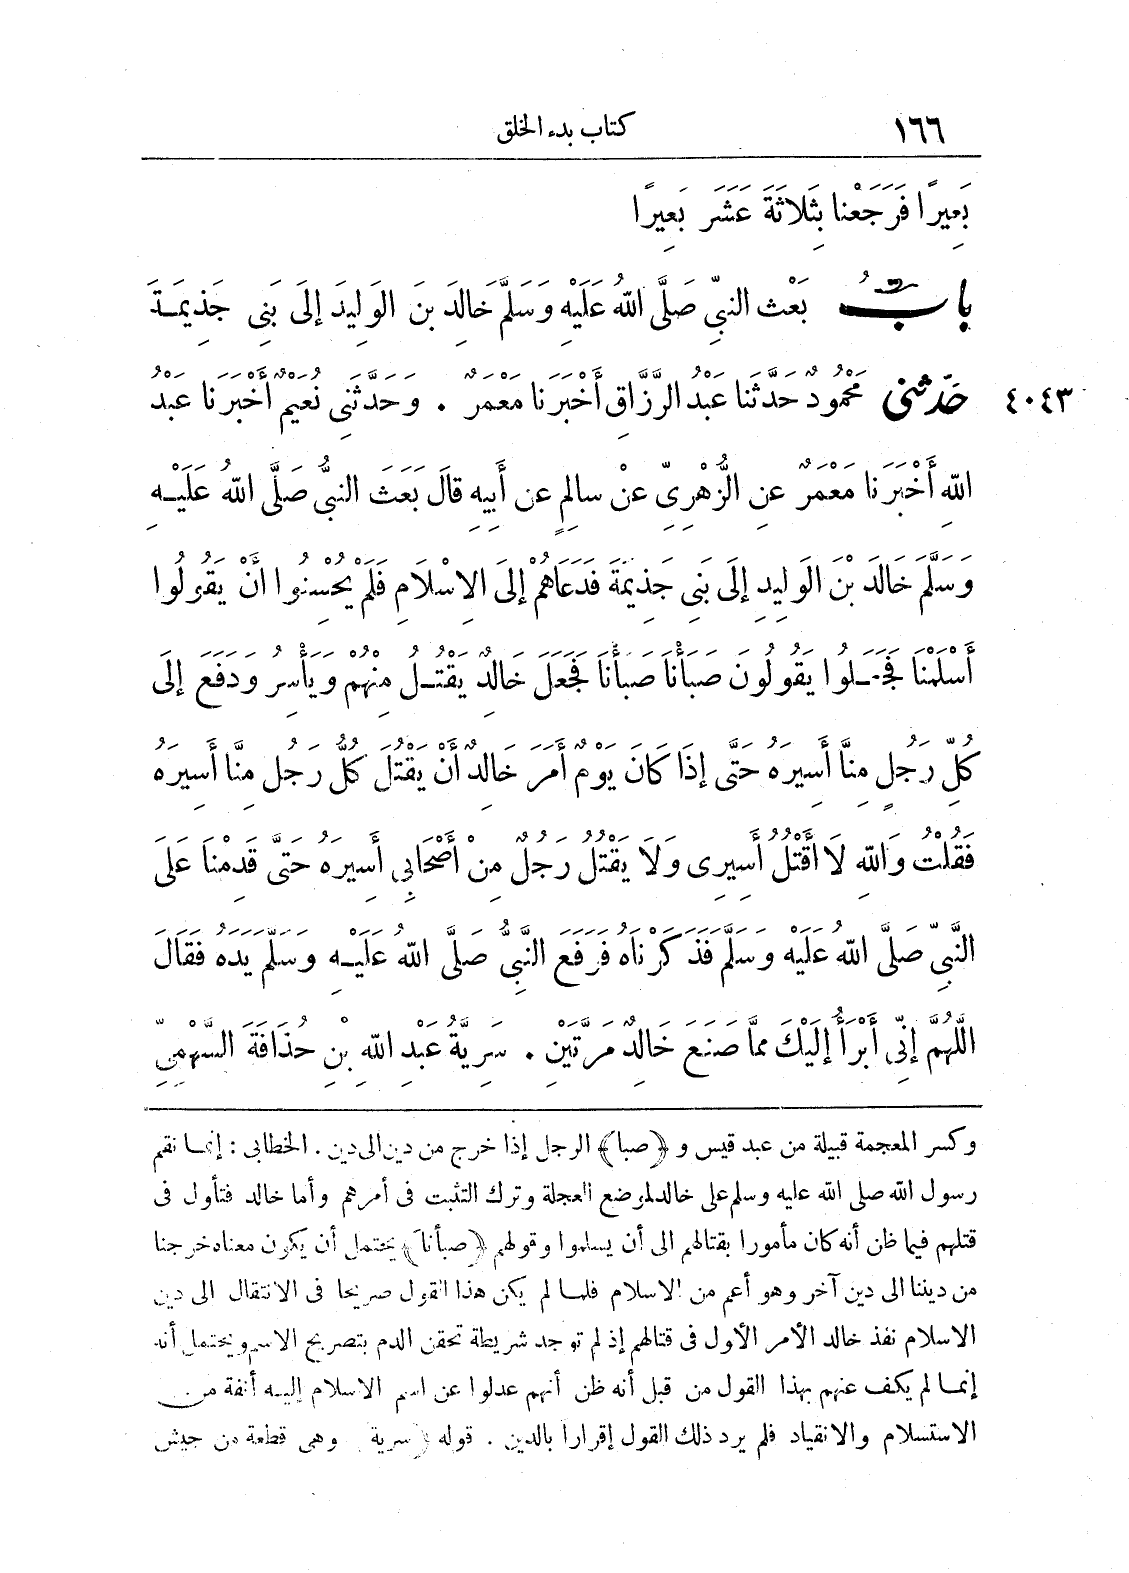 ١٦٦ كتاب بدء الخلق
بَعِيرًا فَرَجَعْنا بِثَلاثَةَ عَشَرَ بَعِيرًا
بابُ بَعْثِ النبيِّ صَلَّى اللهُ عَلَيْهِ وَسَلَّمَ خالِدَ بنَ الوَلِيدِ إلَى بَنِي جَذِيمَةَ
٤٠٤٣ حَدَّثَنِي مَحْمُودٌ حَدَّثَنا عَبْدُ الرَّزَّاقِ أَخْبَرَنا مَعْمَرٌ . وَحَدَّثَنِي نُعَيْمٌ أَخْبَرَنا عَبْدُ
اللهِ أَخْبَرَنا مَعْمَرٌ عنِ الزُّهْرِيِّ عَنْ سالِمٍ عن أَبِيهِ قالَ بَعَثَ النبيُّ صَلَّى اللهُ عَلَيْهِ
وَسَلَّمَ خَالَدَ بْنَ الوَلِيدِ إلَى بَنِي جَذِيمَةَ فَدَعَاهُمْ إلىَ الإِسْلَامِ فَلَمْ يُحْسِنُوا أنْ يَقُولُوا
أَسْلَمْنَا فَجَعَلُوا يَقُولُونَ صَبَأْنَا صَبَأْنَا فَجَعَلَ خَالِدٌ يَقْتُلُ مِنْهُمْ وَيَأْسِرُ وَدَفَعَ إلَى
كُلِّ رَجُلٍ مِنَّا أَسِيرَهُ حَتَّى إذَا كَانَ يَوْمٌ أَمَرَ خَالِدٌ أَنْ يَقْتُلَ كُلُّ رَجُلٍ مِنَّا أَسِيرَهُ
فَقُلْتُ وَاللهِ لَا أَقْتُلُ أَسِيرِى وَلَا يَقْتُلُ رَجُلٌ مِنْ أَصْحَابِي أَسِيرَهُ حَتَّى قَدِمْنَا عَلَى
النَّبِيِّ صَلَّى اللهُ عَلَيْهِ وَسَلَّمَ فَذَكَرْنَاهُ فَرَفَعَ النَّبِيُّ صَلَّى اللهُ عَلَيْهِ وَسَلَّمَ يَدَهُ فَقَالَ
اللَّهُمَّ إِنِّي أَبْرَأُ إِلَيْكَ مِمَّا صَنَعَ خَالِدٌ مَرَّتَيْنِ . سَرِيَّةُ عَبْدِ اللهِ بْنِ حُذَافَةَ السَّهْمِيِّ
وكسر المعجمة قبيلة من عبد قيس و ﴿صبا﴾ الرجل إذا خرج من دين الى دين . الخطابى : إنما نقم
رسول الله صلى الله عليه وسلم على خالد لموضع العجلة وترك التثبت فى أمرهم وأما خالد فتأول فى
قتلهم فيما ظن أنه كان مأمورا بقتالهم الى أن يسلموا وقولهم ﴿صبأنا﴾ يحتمل أن يكون معناه خرجنا
من ديننا الى دين آخر وهو أعم من الاسلام فلما لم يكن هذا القول صريحا فى الانتقال الى دين
الاسلام نفذ خالد الأمر الأول فى قتالهم إذ لم توجد شريطة تحقن الدم بتصريح الاسم ويحتمل أنه
إنما لم يكف عنهم بهذا القول من قبل أنه ظن أنهم عدلوا عن اسم الاسلام إليه أنفة من
الاستسلام والانقياد فلم يرد ذلك القول إقرارا بالدين . قوله ﴿سرية﴾ وهى قطعة من جيش